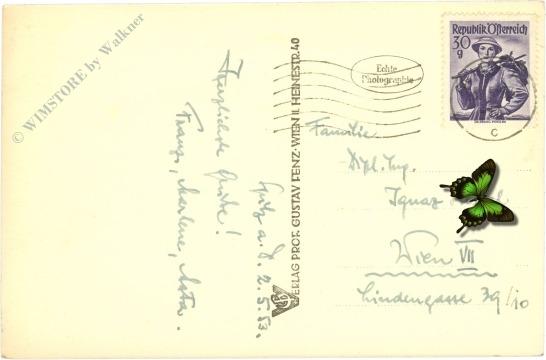 © WIMSTORE by Walkner
Herzlichste Grüße!
Franz, Marlene, Marta.
Spitz a. D. 2.5.53.
VERLAG PROF. GUSTAV FENZ · WIEN II. HEINESTR. 40
Echte
Photographie
Republik Österreich
30
g
C
Familie
Dipl. Ing.
Ignaz
Wien VII
Lindengasse 39/10